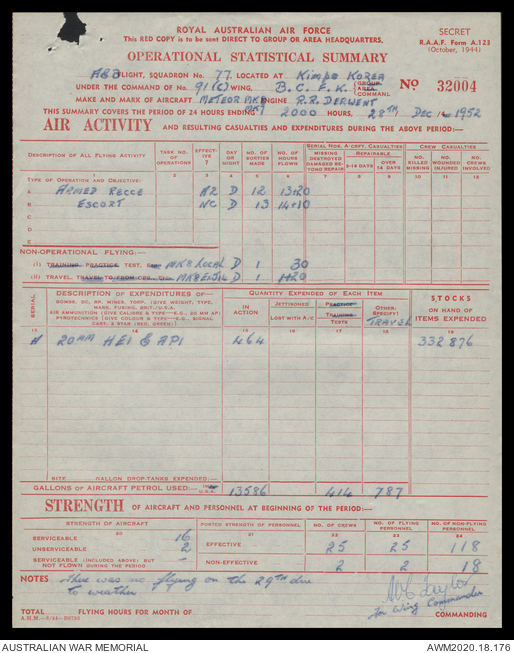 ROYAL AUSTRALIAN AIR FORCE
This RED COPY is to be sent DIRECT TO GROUP OR AREA HEADQUARTERS.
SECRET
R.A.A.F. Form A.125
(October, 1944)
OPERATIONAL STATISTICAL SUMMARY
A&B FLIGHT, SQUADRON No. 77. LOCATED AT Kimpo KOREA
UNDER THE COMMAND OF No. 91(C) WING, B.C.F.K. GROUP AREA COMMAND
No 32004
MAKE AND MARK OF AIRCRAFT METEOR MK8 ENGINE R.R. DERWENT
MK7
THIS SUMMARY COVERS THE PERIOD OF 24 HOURS ENDING 2000 HOURS, 28TH, DEC 1952
AIR ACTIVITY AND RESULTING CASUALTIES AND EXPENDITURES DURING THE ABOVE PERIOD:—
DESCRIPTION OF ALL FLYING ACTIVITY
TASK NO. OF OPERATIONS
EFFECTIVE ?
DAY OR NIGHT
NO. OF SORTIES MADE
NO. OF HOURS FLOWN
SERIAL NOS. A/CRFT. CASUALTIES
MISSING DESTROYED DAMAGED BEYOND REPAIR
REPAIRABLE
0-14 DAYS
OVER 14 DAYS
CREW CASUALTIES
NO. KILLED MISSING
NO. WOUNDED INJURED
NO. CREWS INVOLVED
1 2 3 4 5 6 7 8 9 10 11 12
TYPE OF OPERATION AND OBJECTIVE:
A ARMED RECCE A2 D 12 13·20
B ESCORT NC D 13 14·10
C
D
E
NON-OPERATIONAL FLYING:—
(I) TRAINING PRACTICE TEST, MK8 LOCAL D 1 30
(II) TRAVEL, TRAVEL TO D 1 1·20
SERIAL
DESCRIPTION OF EXPENDITURES OF—
BOMBS, DC, RP, MINES, TORP. (GIVE WEIGHT, TYPE, MARK, FUSING, BRIT./U.S.A.
AIR AMMUNITION (GIVE CALIBRE & TYPE—E.G., 20 MM AP)
PYROTECHNICS (GIVE COLOUR & TYPE—E.G., SIGNAL CART. 2 STAR (RED, GREEN).)
QUANTITY EXPENDED OF EACH ITEM
IN ACTION
JETTISONED
LOST WITH A/C
PRACTICE
TRAINING
TESTS
OTHER: SPECIFY)
TRAVEL
STOCKS
ON HAND OF ITEMS EXPENDED
13 14 15 16 17 18 19
A 20MM HEI & API 464 332876
SITE GALLON DROP-TANKS EXPENDED:—
GALLONS OF AIRCRAFT PETROL USED:— 13586 414 787
STRENGTH OF AIRCRAFT AND PERSONNEL AT BEGINNING OF THE PERIOD:—
STRENGTH OF AIRCRAFT
20
POSTED STRENGTH OF PERSONNEL
21
NO. OF CREWS
22
NO. OF FLYING PERSONNEL
23
NO. OF NON-FLYING PERSONNEL
24
SERVICEABLE 16
UNSERVICEABLE 2
SERVICEABLE (INCLUDED ABOVE) BUT NOT FLOWN DURING THE PERIOD —
EFFECTIVE 25 25 118
NON-EFFECTIVE 2 2 18
NOTES There was no flying on the 29th due
to weather
Taylor
for Wing Commander
COMMANDING
TOTAL FLYING HOURS FOR MONTH OF
AUSTRALIAN WAR MEMORIAL
AWM2020.18.176